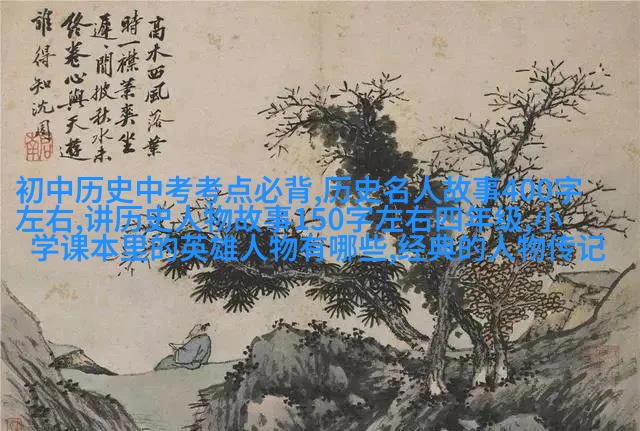 高木西風落葉
時一襟蕭爽坐
遲〻閒披秋水未
終卷心與天遊
誰得知沈周
初中历史中考考点必背,历史名人故事400字
左右,讲历史人物故事150字左右四年级,小
学课本里的英雄人物有哪些,经典的人物传记